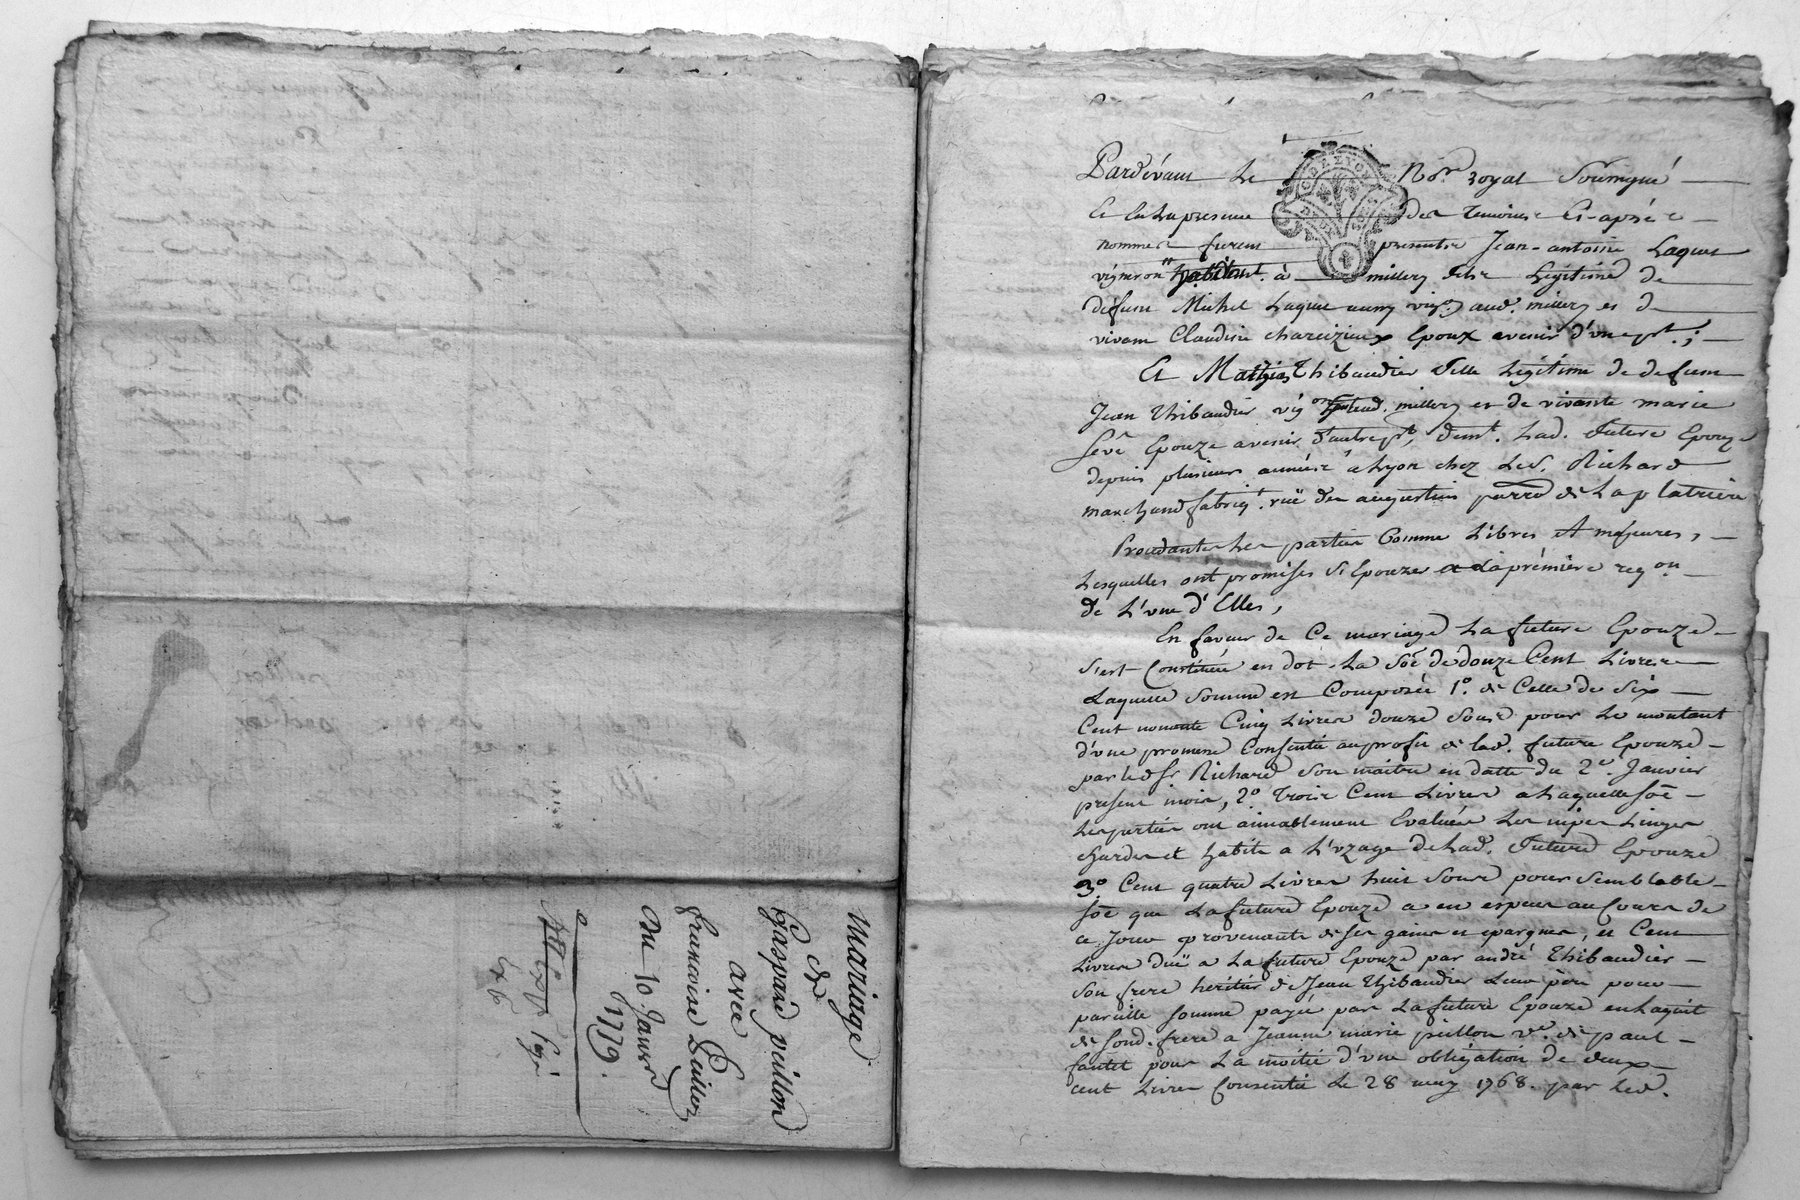 mariage
de
Gaspard peillon
avec
francoise Paillet
du 10 Janvier
1779.
Pardévant Le Nore royal Soussigné
Et En La presence des temoins Ci-après
nommés furent presents Jean-antoine Laguet
vigneron habitant à millery fils Légitime de
défunt Michel Laguet aud. millery et de
vivante Claudine chareizieux Epoux avenir d'une pt. ;
Et Thibaudier fille Légitime de defunt
Jean Thibaudier vigon aud. millery et de vivante marie
Seve Epouze avenir d'autre pt, demt. Lad. future Epouze
depuis plusieurs années a Lyon chez Led. Richard
marchand fabriqt. rüe des augustins parre de La platriere
Procedantes Les parties Comme Libres Et majeures,
Lesquelles ont promises S'Epouzer a La prémière reqon
de L'une d'Elles,
En faveur de Ce mariage La future Epouze
s'est Constituée en dot La Soe de douze Cent Livres
Laquelle Somme est Composée 1o. de Celle de Six
Cent nonante Cinq Livres douze Sous pour Le montant
d'une promesse Consentie au profit de lad. future Epouze
par led Sr Richard Son maitre en datte du 2e. Janvier
present mois, 2o. Trois Cent Livres a Laquelle Soe
Les parties ont aimablement Evaluées Les nipes Linges
hardes et habits a L'uzage de Lad. Future Epouze
3o Cent quatre Livres huit Sous pour Semblable
Soe que La future Epouze a en especes au Cours de
ce Jour provenants de Ses gains et epargnes, et Cent
Livres duë a La future Epouze par andré Thibaudier
Son frere héritier de Jean Thibaudier Leur pere pour
pareille Somme payée par La future Epouze en Laquit
de Sond. frere a Jeanne marie peillon ve. de paul
fantet pour La moitié d'une obligation de deux
cent Livres Consentie Le 28 may 1768. par Led.